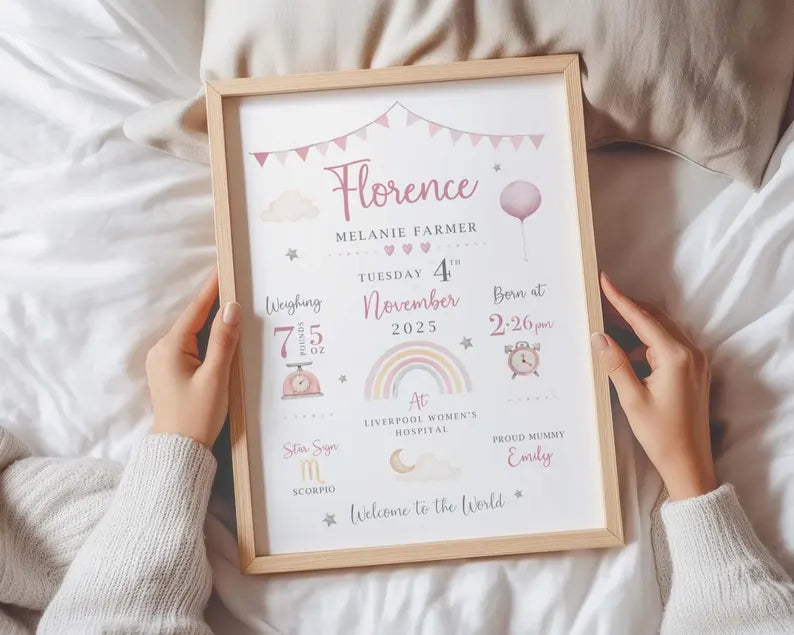 Florence
MELANIE FARMER
TUESDAY 4TH
November
2025
Weighing
7 POUNDS 5 OZ
Born at
2.26pm
At
LIVERPOOL WOMEN'S
HOSPITAL
Star Sign
SCORPIO
PROUD MUMMY
Emily
Welcome to the World